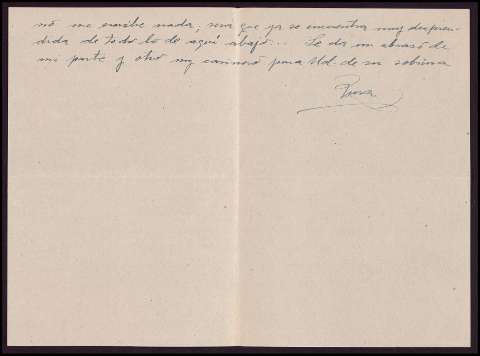 no me escribe nada, será que ya se encuentra muy despren-
dida de todo lo de aquí abajo... Le da un abrazo de
mi parte y otro muy cariñoso para Ud. de su sobrina